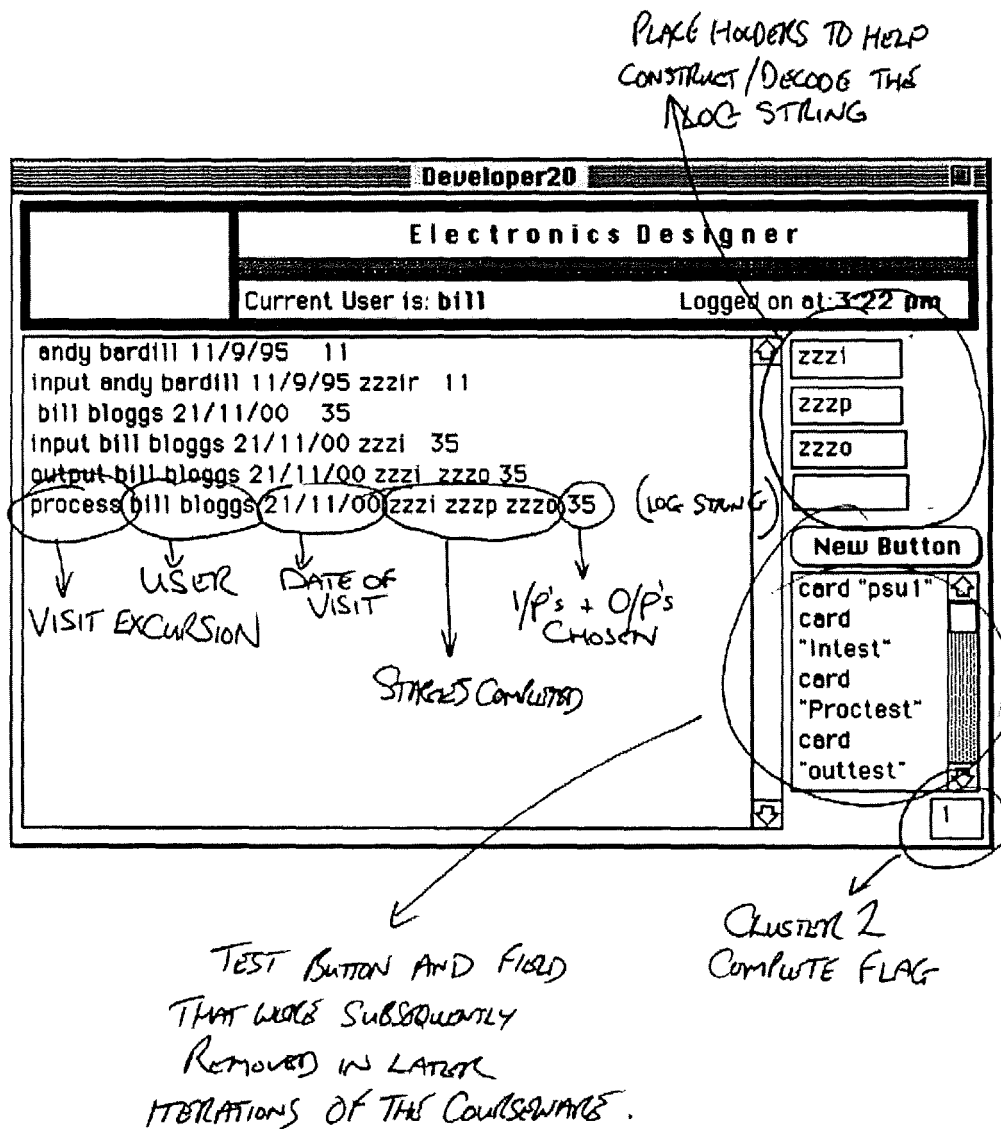 PLACE HOLDERS TO HELP
CONSTRUCT/DECODE THE
LOG STRING
Developer20
Electronics Designer
Current User is: bill Logged on at: 3:22 pm
andy bardill 11/9/95 11
input andy bardill 11/9/95 zzzir 11
bill bloggs 21/11/00 35
input bill bloggs 21/11/00 zzzi 35
output bill bloggs 21/11/00 zzzi zzzo 35
process bill bloggs 21/11/00 zzzi zzzp zzzo 35
(LOG STRING)
zzzi
zzzp
zzzo
New Button
card "psu1"
card
"Intest"
card
"Proctest"
card
"outtest"
1
VISIT EXCURSION
USER
DATE OF
VISIT
STAGES COMPLETED
I/P's + O/P's
CHOSEN
CLUSTER 2
COMPLETE FLAG
TEST BUTTON AND FIELD
THAT WERE SUBSEQUENTLY
REMOVED IN LATER
ITERATIONS OF THE COURSEWARE.